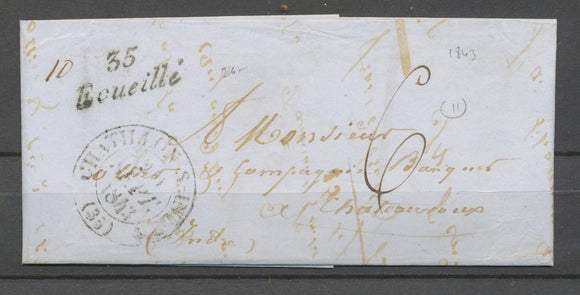 10
35
Ecueillé
1843
11
CHATILLON-S-INDRE
(35)
6
Monsieur
& Compagnie Banquier
a Châteauroux
(Indre)